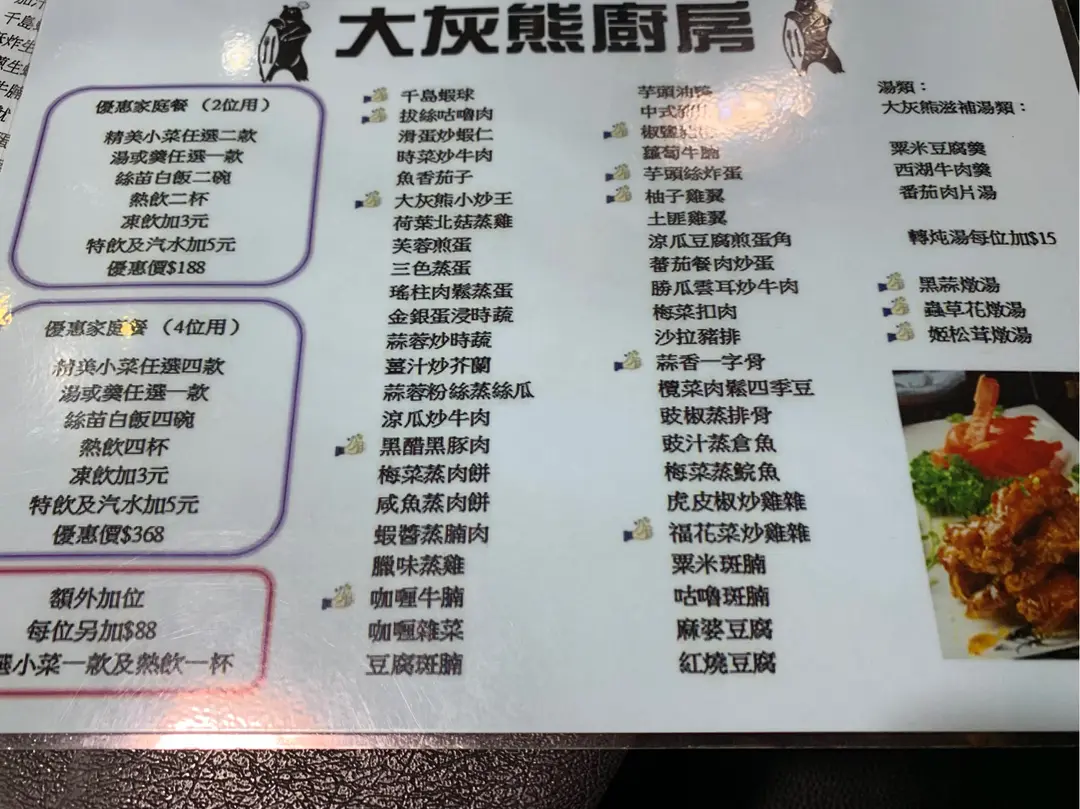 大灰熊廚房
優惠家庭餐（2位用）
精美小菜任選二款
湯或羹任選一款
絲苗白飯二碗
熱飲二杯
凍飲加3元
特飲及汽水加5元
優惠價$188
優惠家庭餐（4位用）
精美小菜任選四款
湯或羹任選一款
絲苗白飯四碗
熱飲四杯
凍飲加3元
特飲及汽水加5元
優惠價$368
額外加位
每位另加$88
選小菜一款及熱飲一杯
千島蝦球
拔絲咕嚕肉
滑蛋炒蝦仁
時菜炒牛肉
魚香茄子
大灰熊小炒王
荷葉北菇蒸雞
芙蓉煎蛋
三色蒸蛋
瑤柱肉鬆蒸蛋
金銀蛋浸時蔬
蒜蓉炒時蔬
薑汁炒芥蘭
蒜蓉粉絲蒸絲瓜
涼瓜炒牛肉
黑醋黑豚肉
梅菜蒸肉餅
咸魚蒸肉餅
蝦醬蒸腩肉
臘味蒸雞
咖喱牛腩
咖喱雜菜
豆腐斑腩
芋頭油鴨
中式
椒鹽
蘿蔔牛腩
芋頭絲炸蛋
柚子雞翼
土匪雞翼
涼瓜豆腐煎蛋角
蕃茄餐肉炒蛋
勝瓜雲耳炒牛肉
梅菜扣肉
沙拉豬排
蒜香一字骨
欖菜肉鬆四季豆
豉椒蒸排骨
豉汁蒸倉魚
梅菜蒸鯇魚
虎皮椒炒雞雜
福花菜炒雞雜
粟米斑腩
咕嚕斑腩
麻婆豆腐
紅燒豆腐
湯類：
大灰熊滋補湯類：
粟米豆腐羹
西湖牛肉羹
番茄肉片湯
轉炖湯每位加$15
黑蒜燉湯
蟲草花燉湯
姬松茸燉湯